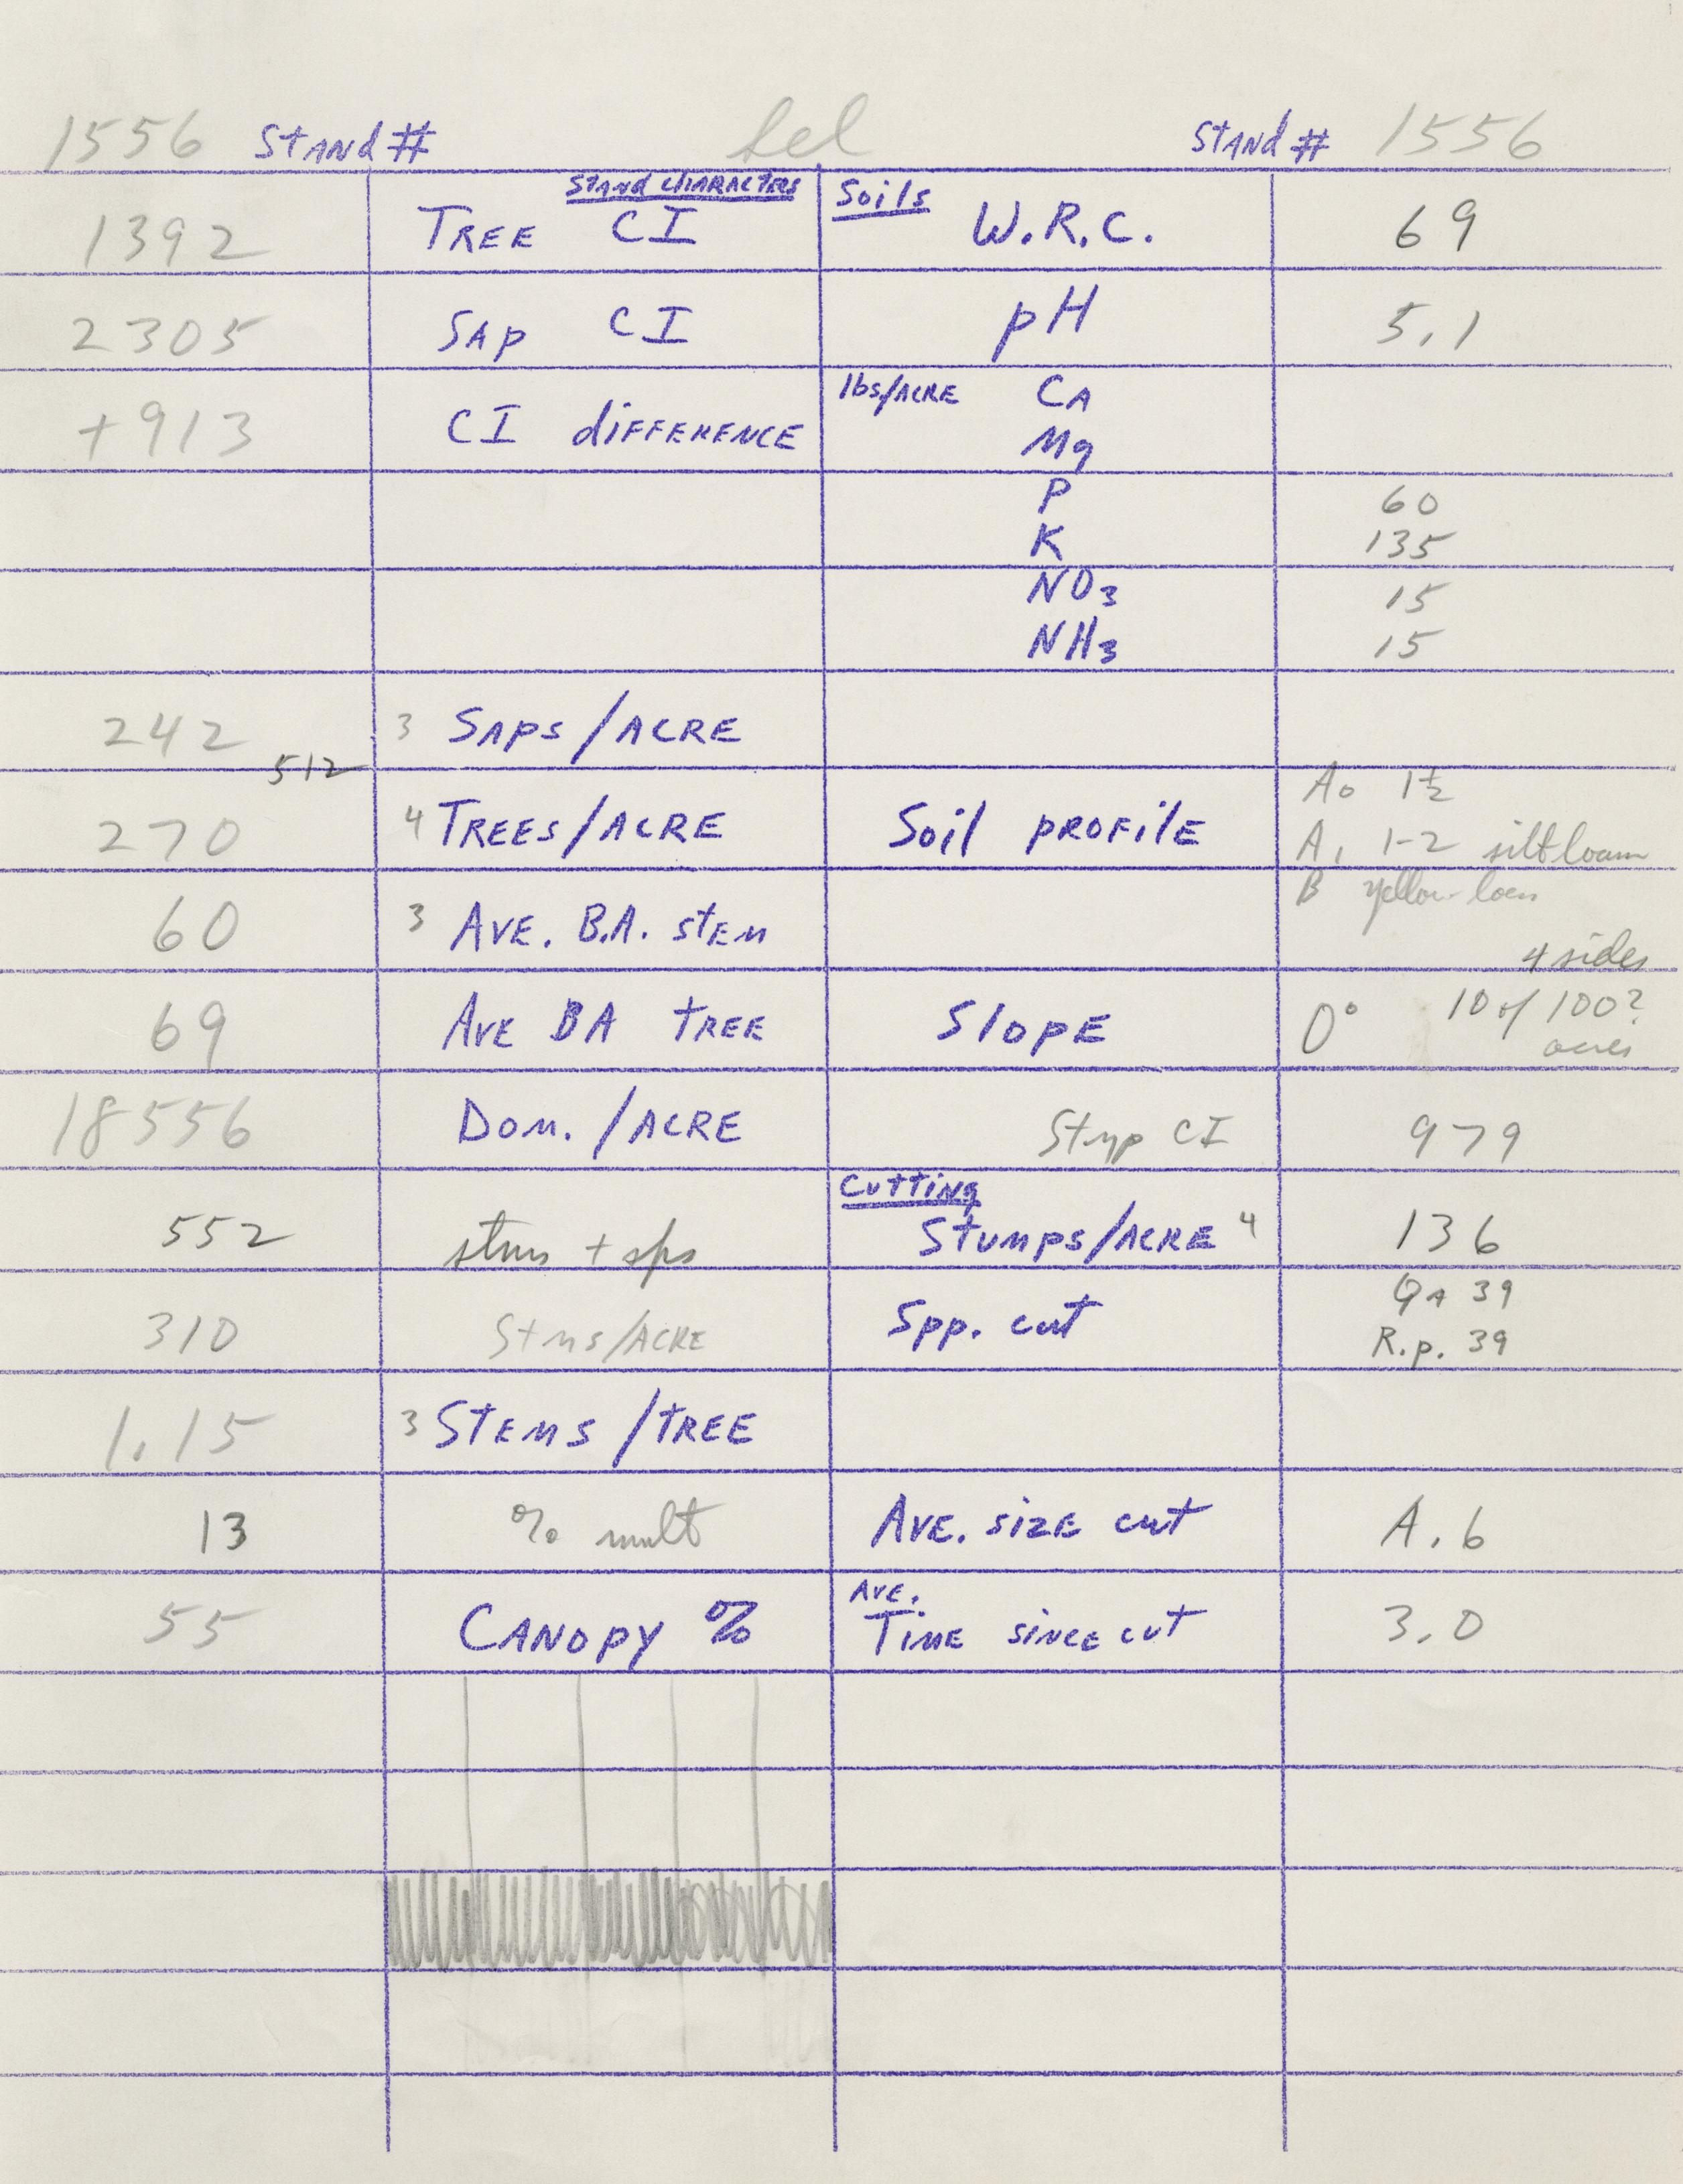 1556 Stand # Sel Stand # 1556
Stand Characters Soils
1392 Tree CI W.R.C. 69
2305 Sap CI pH 5.1
+913 CI difference lbs/Acre Ca
Mg
P 60
K 135
NO3 15
NH3 15
242 3 Saps/Acre
512
270 4 Trees/Acre Soil profile A0 1½
A1 1-2 silt loam
B yellow loess
60 3 Ave. B.A. stem
4 sides
69 Ave BA tree Slope 0° 10 of 100?
acres
18556 Dom./Acre Stmp CI 979
Cutting
552 stms + sps Stumps/Acre 4 136
310 Stms/Acre Spp. cut QA 39
R.p. 39
1.15 3 Stems/tree
13 % mult Ave. size cut A.6
55 Canopy % Ave. Time since cut 3.0